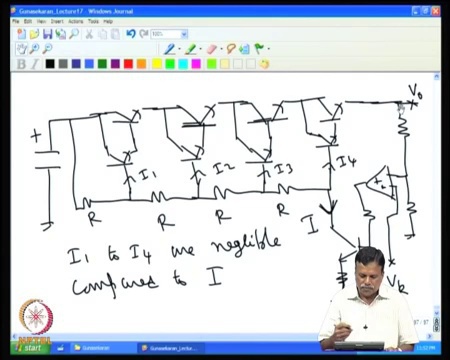 Gunasekaran_Lecture17 - Windows Journal
File Edit View Insert Actions Tools Help
100%
B I
V₀
+
I₁ I₂ I₃ I₄
R R R R
I
+
I₁ to I₄ are neglible
compared to I
V_R
start Gunasekaran